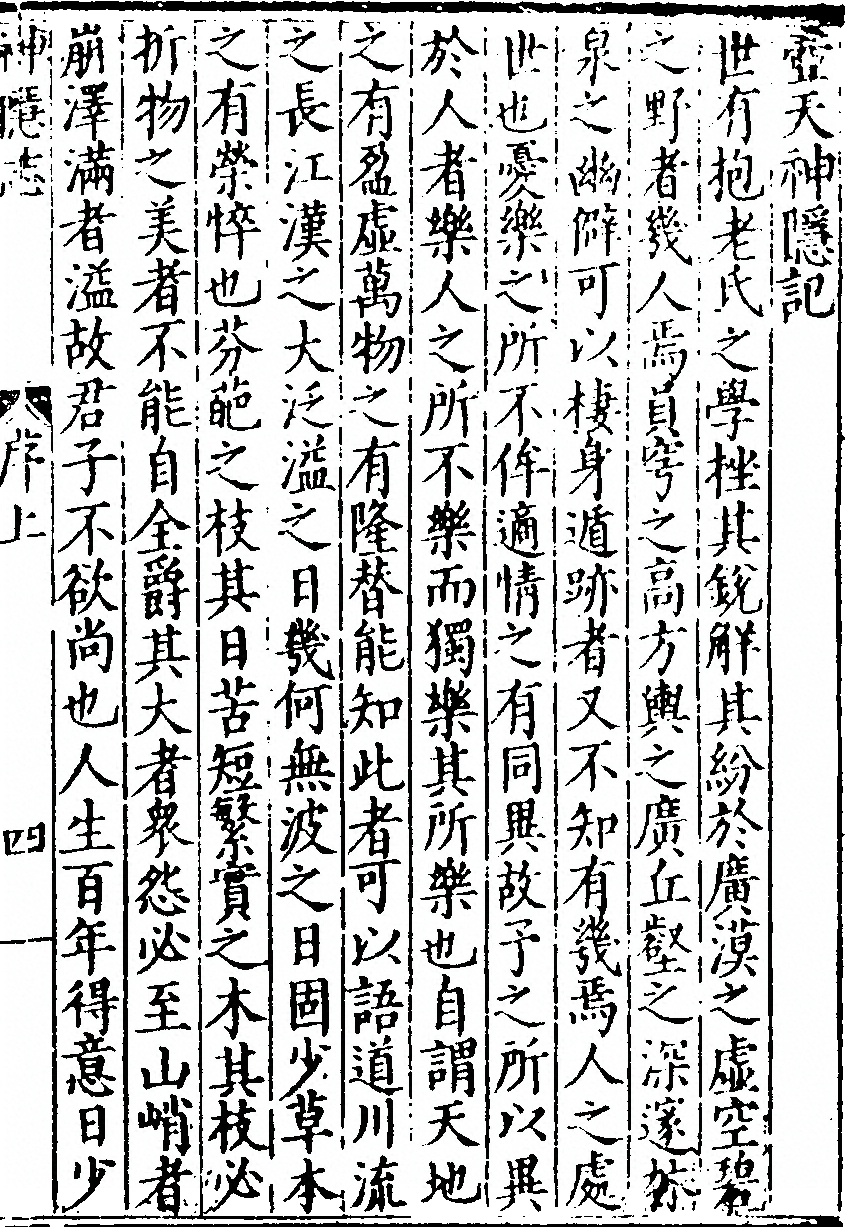 壺天神隱記
世有抱老氏之學挫其銳解其紛於廣漠之虛空碧
之野者幾人焉員穹之高方輿之廣丘壑之深邃林
泉之幽僻可以棲身遁跡者又不知有幾焉人之處
世也憂樂之所不侔適情之有同異故予之所以異
於人者樂人之所不樂而獨樂其所樂也自謂天地
之有盈虛萬物之有隆替能知此者可以語道川流
之長江漢之大泛溢之日幾何無波之日固少草本
之有榮悴也芬葩之枝其日苦短繁實之木其枝必
折物之美者不能自全爵其大者衆怨必至山峭者
崩澤滿者溢故君子不欲尚也人生百年得意日少
神隱志 序上 四